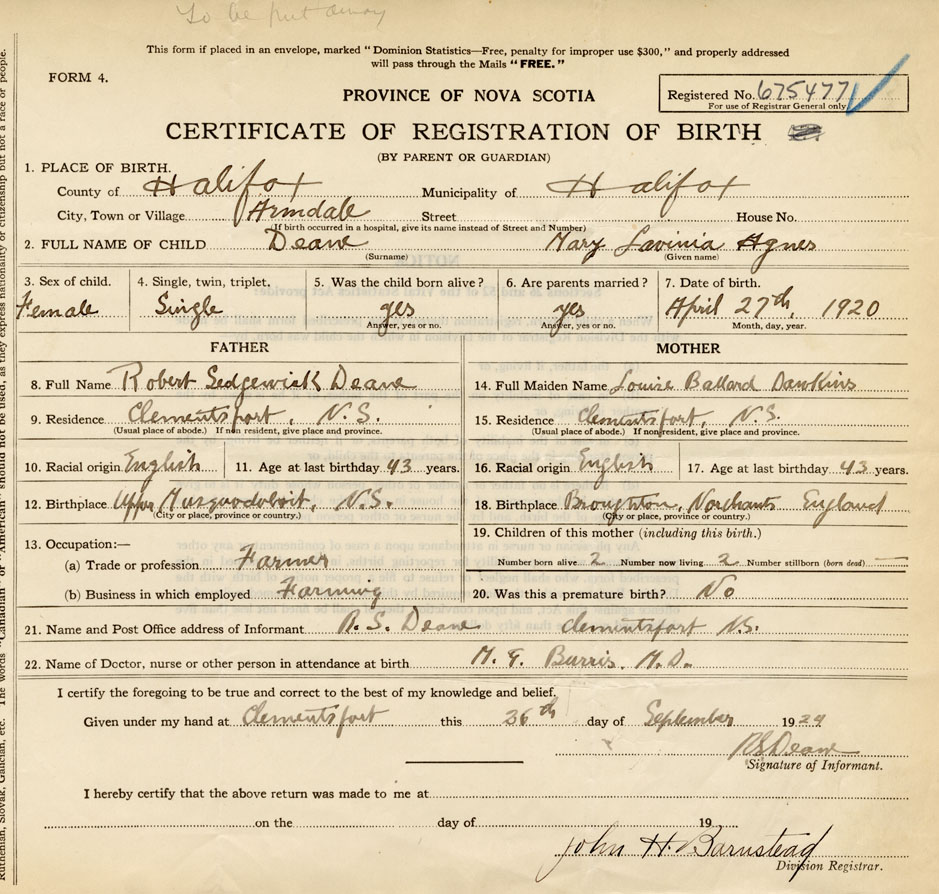 To be put away
This form if placed in an envelope, marked "Dominion Statistics—Free, penalty for improper use $300," and properly addressed
will pass through the Mails "FREE."
FORM 4.
PROVINCE OF NOVA SCOTIA
Registered No. 675477
For use of Registrar General only
CERTIFICATE OF REGISTRATION OF BIRTH
(BY PARENT OR GUARDIAN)
1. PLACE OF BIRTH.
County of Halifax Municipality of Halifax
City, Town or Village Armdale Street House No.
(If birth occurred in a hospital, give its name instead of Street and Number)
2. FULL NAME OF CHILD Deane Mary Lavinia Agnes
(Surname) (Given name)
3. Sex of child. 4. Single, twin, triplet. 5. Was the child born alive? 6. Are parents married? 7. Date of birth.
Female Single yes yes April 27th, 1920
Answer, yes or no. Answer, yes or no. Month, day, year.
FATHER MOTHER
8. Full Name Robert Sedgewick Deane 14. Full Maiden Name Louise Ballard Dawkins
9. Residence Clementsport, N.S. 15. Residence Clementsport, N.S.
(Usual place of abode.) If non resident, give place and province. (Usual place of abode.) If nonresident, give place and province.
10. Racial origin English 11. Age at last birthday 43 years. 16. Racial origin English 17. Age at last birthday 43 years.
12. Birthplace Upper Musquodoboit, N.S. 18. Birthplace Broughton, Northants England
(City or place, province or country.) (City or place, province or country.)
13. Occupation:— 19. Children of this mother (including this birth.)
(a) Trade or profession Farmer Number born alive 2 Number now living 2 Number stillborn (born dead) —
(b) Business in which employed Farming 20. Was this a premature birth? No
21. Name and Post Office address of Informant R. S. Deane Clementsport N.S.
22. Name of Doctor, nurse or other person in attendance at birth M. G. Burris, M.D.
I certify the foregoing to be true and correct to the best of my knowledge and belief.
Given under my hand at Clementsport this 26th day of September 1924
RSDeane
Signature of Informant.
I hereby certify that the above return was made to me at
on the day of 19
John H. Barnstead
Division Registrar.
Ruthenian, Slovak, Galician, etc. The words "Canadian" or "American" should not be used, as they express nationality or citizenship but not a race or people.